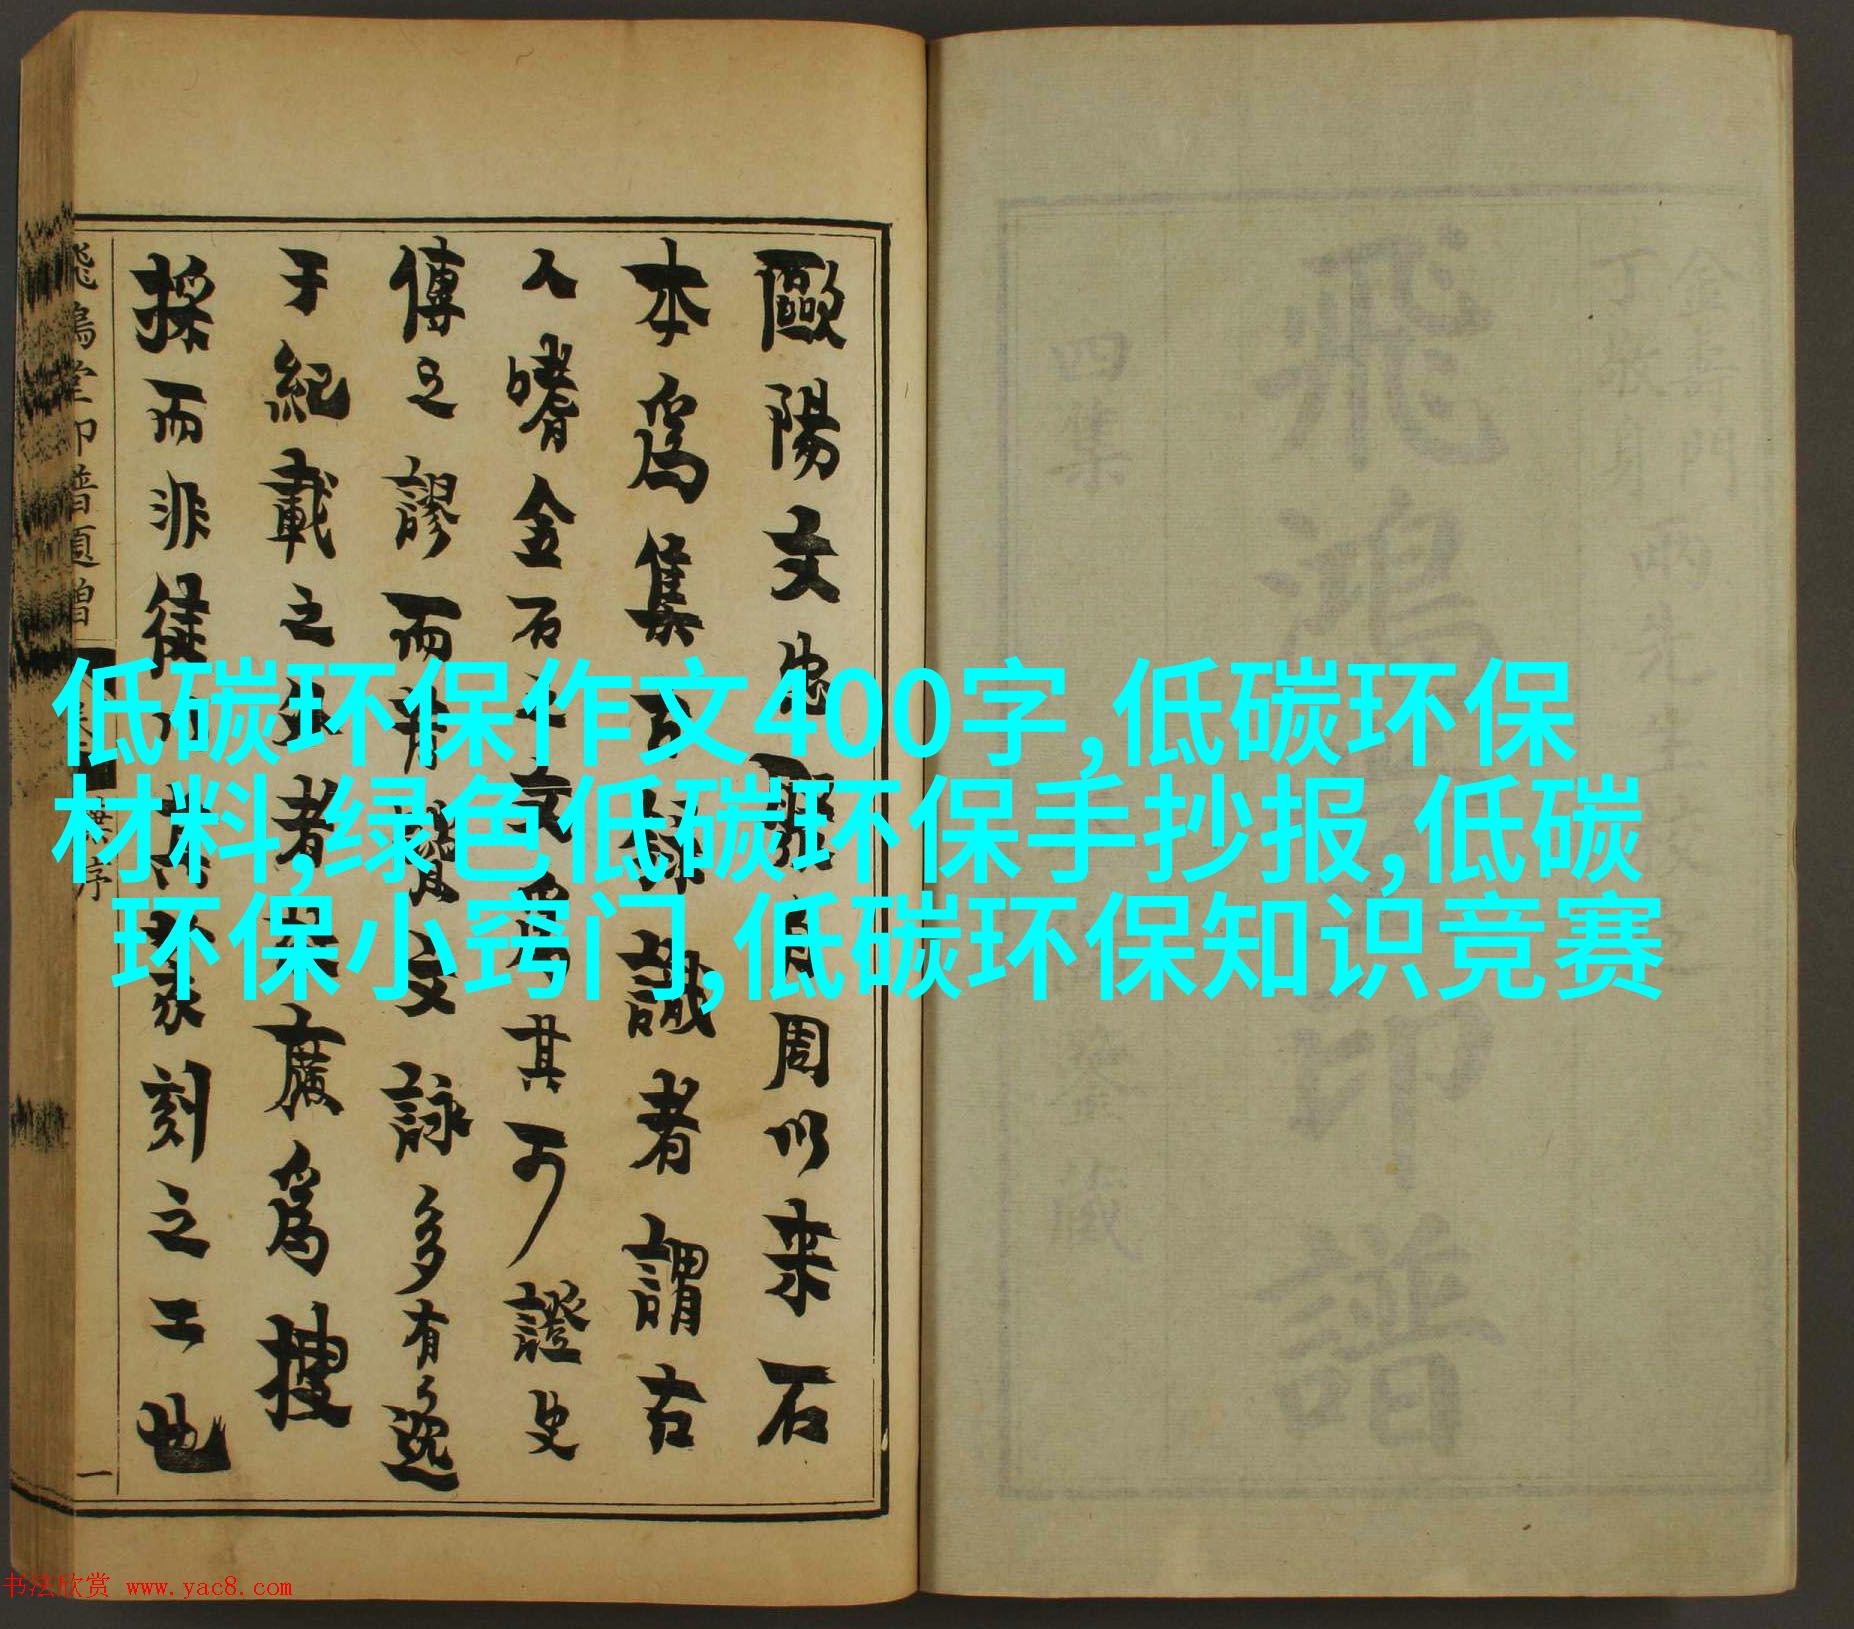 金壽門
丁敬身
兩先生
飛鴻堂印譜
四集 藏
歐陽文忠 周以来石
本為集古錄識者謂古
人嗜金石之文為其可證史
傳之謬而 文詠多有逸
于紀載之外者 廣為搜
採而非徒 篆刻之工也
飛鴻堂印譜題贈 序 一
低碳环保作文400字,低碳环保
材料,绿色低碳环保手抄报,低碳
环保小窍门,低碳环保知识竞赛
书法欣赏 www.yac8.com